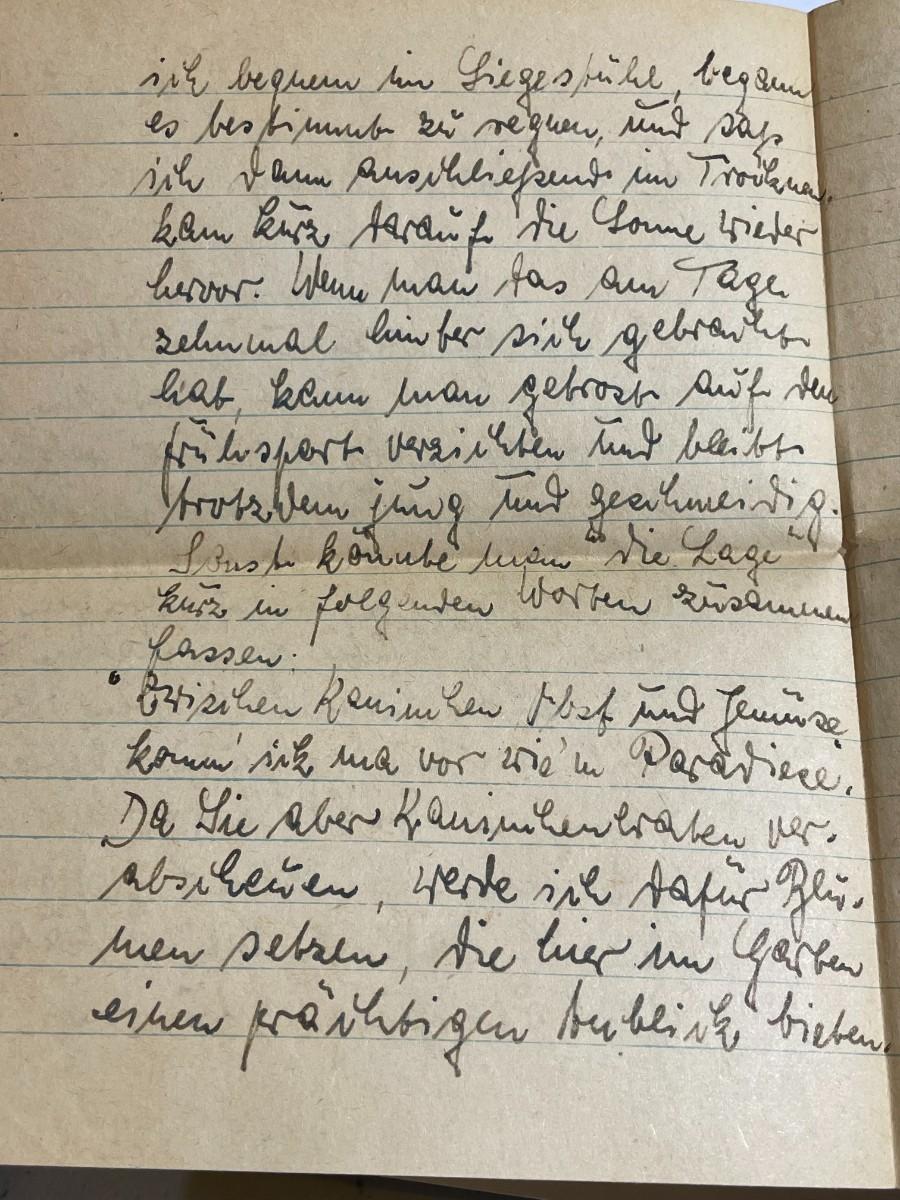 ich bequem im Liegestuhl, begann
es bestimmt zu regnen, und saß
ich dann anschließend im Trocknen,
kam kurz darauf die Sonne wieder
hervor. Wenn man das am Tage
zehnmal hinter sich gebracht
hat, kann man getrost auf den
Frühsport verzichten und bleibt
trotzdem jung und geschmeidig.
Sonst könnte man "die Lage"
kurz in folgenden Worten zusammen
fassen:
"Zwischen Kaninchen Obst und Gemüse
komm' ich ma vor wie'n Paradiese.
Da Sie aber Kaninchenbraten ver-
abscheuen, werde ich dafür Blu-
men setzen, die hier im Garten
einen prächtigen Anblick bieten.